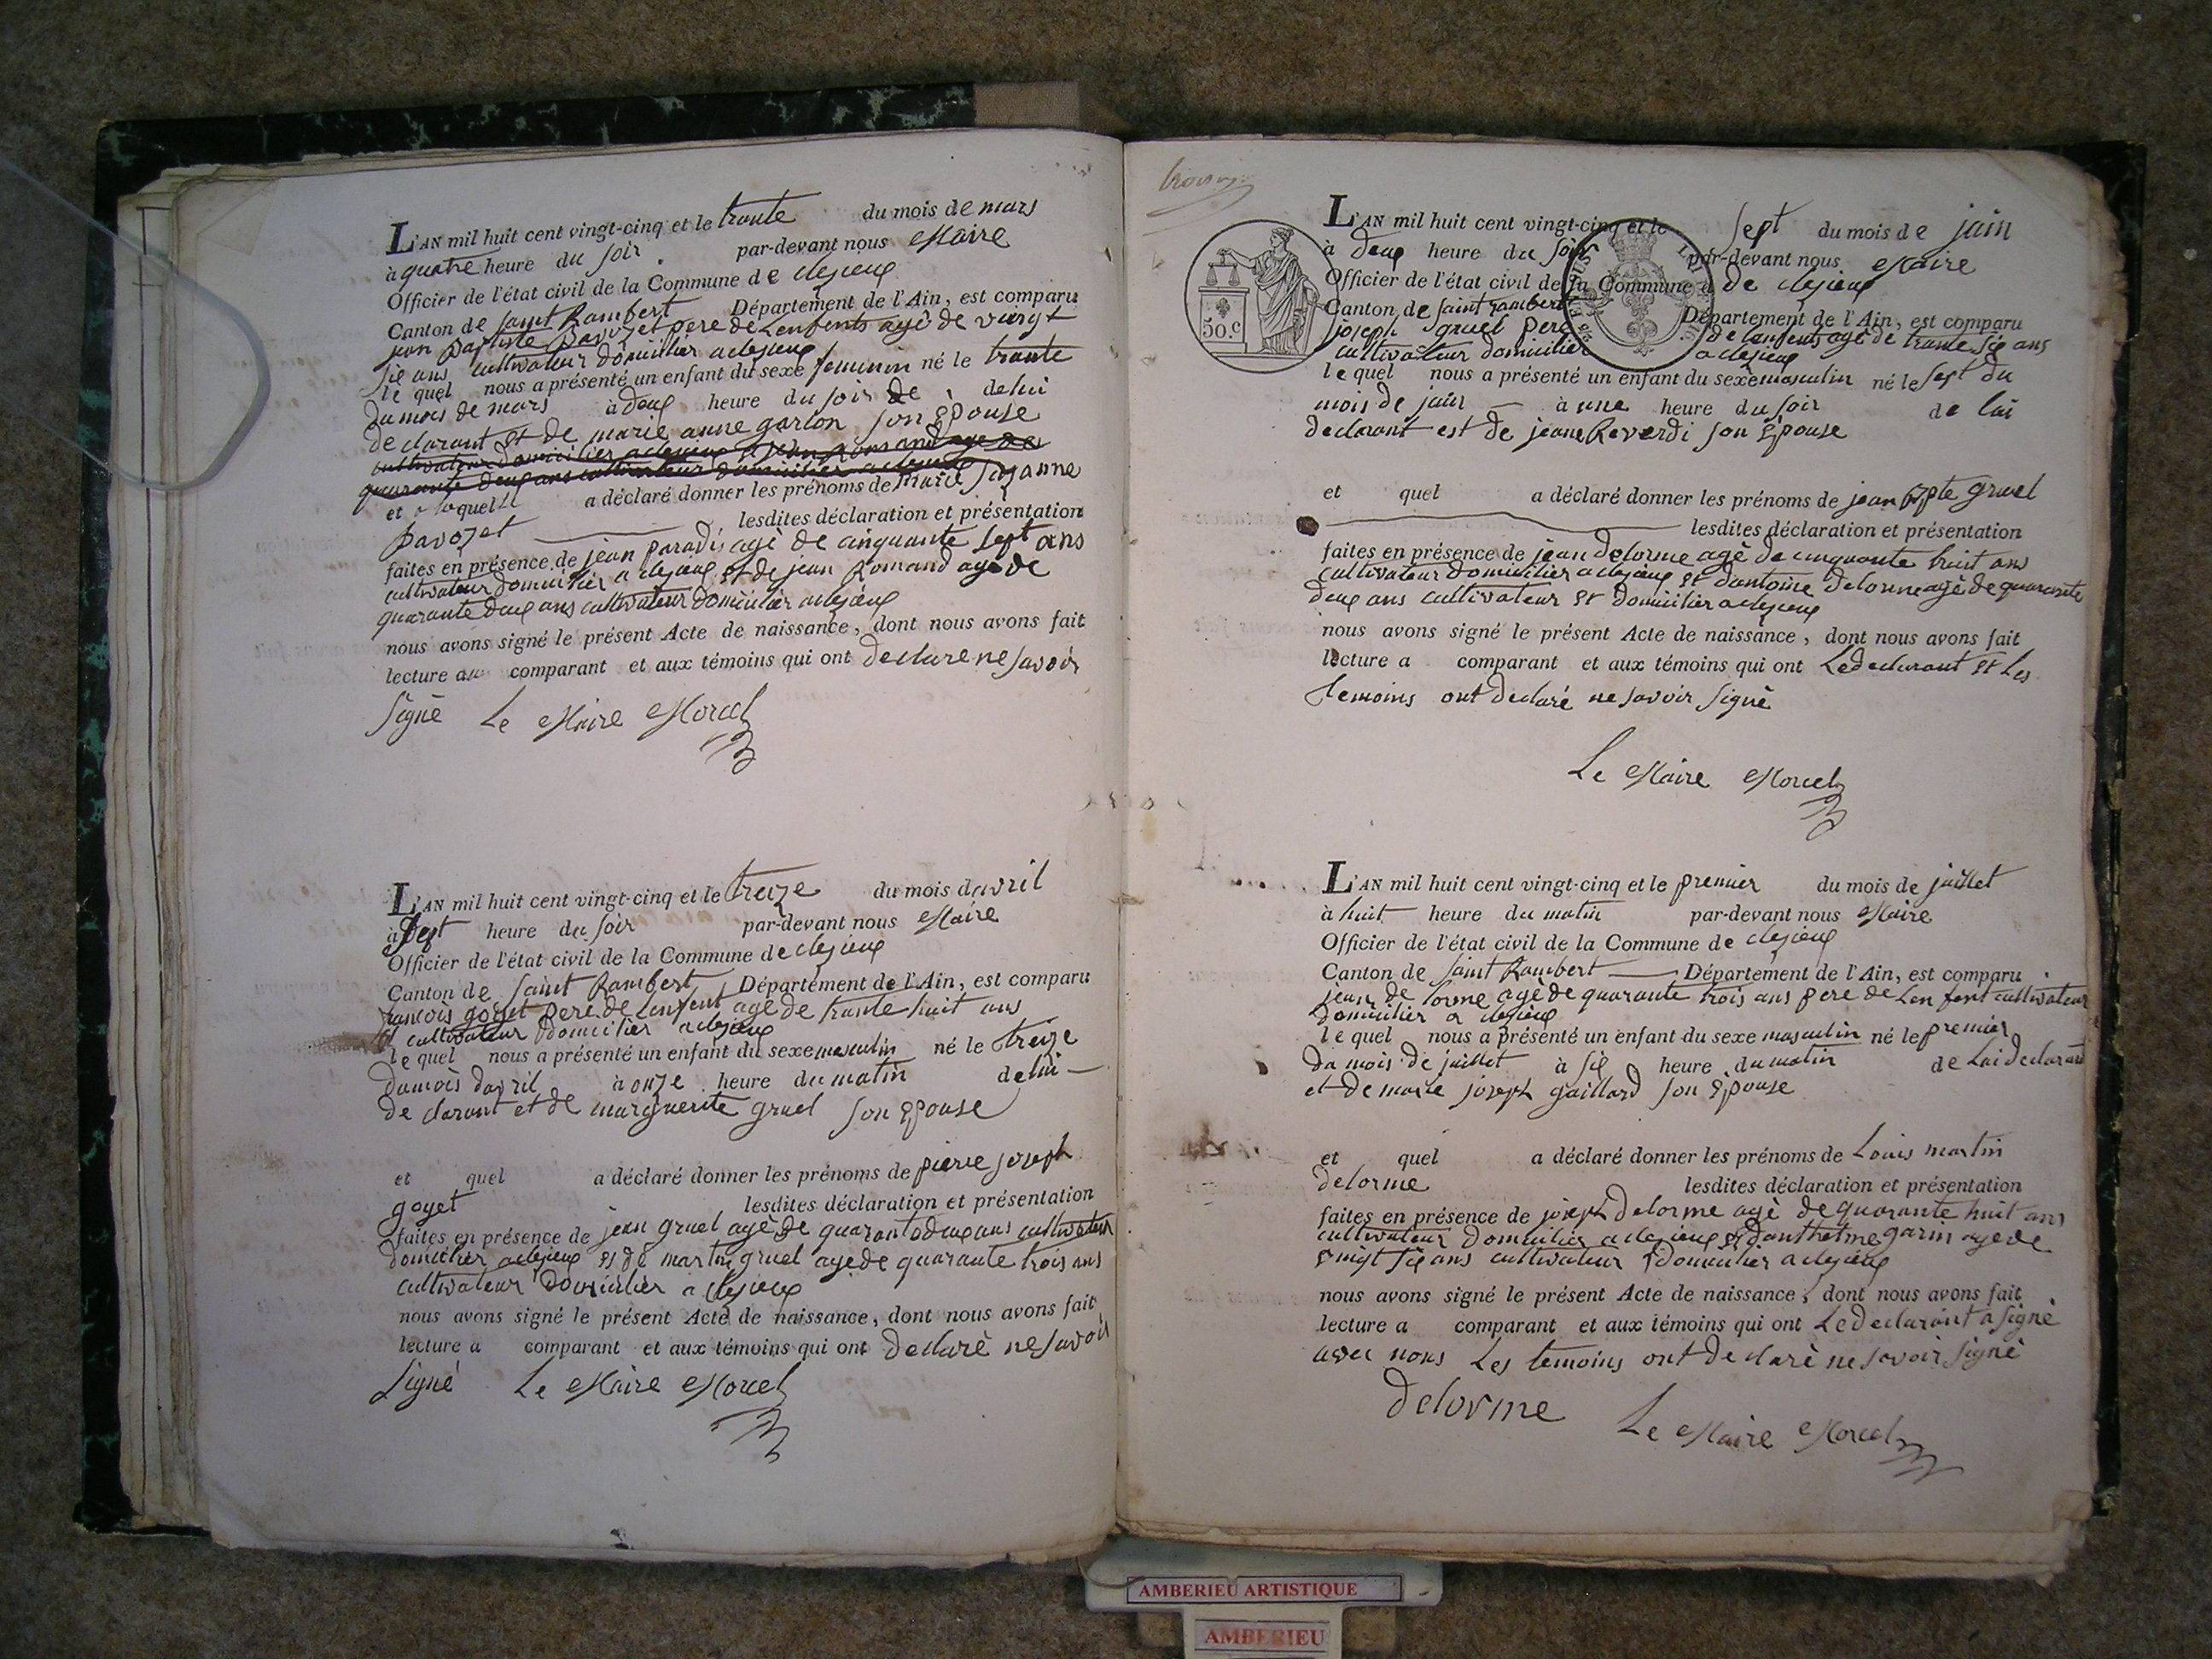 L'AN mil huit cent vingt-cinq et le trante du mois de mars
à quatre heure du soir par-devant nous Maire
Officier de l'état civil de la Commune de clezieux
Canton de saint Rambert Département de l'Ain, est comparu
jean Baptiste Pavozet pere de Lenfents agè de vuingt
sie ans cultivateur domicilier a clezieux
le quel nous a présenté un enfant du sexe feminin né le trante
du mois de mars à deux heure du soir de de lui
declarant et de marie anne garlon son Epouse
cultivateur domicilier a clezieux et jean Romand age de
quarante deux ans cultivateur domicilier a clezieux
et a laquelle a déclaré donner les prénoms de marie suzanne
Pavozet lesdites déclaration et présentation
faites en présence de jean paradis agè de cinquante sept ans
cultivateur domicilier a clezieux et de jean Romand age de
quarante deux ans cultivateur domicilier a clezieux
nous avons signé le présent Acte de naissance, dont nous avons fait
lecture au comparant et aux témoins qui ont declare ne savoir
signè Le Maire Morcel
L'AN mil huit cent vingt-cinq et le treize du mois davril
à sept heure du soir par-devant nous Maire
Officier de l'état civil de la Commune de clezieux
Canton de saint Rambert Département de l'Ain, est comparu
francois goyet pere de Lenfent agè de trante huit ans
et cultivateur domicilier a clezieux
le quel nous a présenté un enfant du sexe masculin né le treize
du mois davril à onze heure du matin de lui
de clarant et de marguerite gruel son Epouse
et quel a déclaré donner les prénoms de pierre joseph
goyet lesdites déclaration et présentation
faites en présence de jean gruel agè de quarante deux ans cultivateur
domicilier a clezieux et de martin gruel age de quarante trois ans
cultivateur domicilier a clezieux
nous avons signé le présent Acte de naissance, dont nous avons fait
lecture a comparant et aux témoins qui ont declarè ne savoir
signé Le Maire Morcel
L'AN mil huit cent vingt-cinq et le sept du mois de juin
à deux heure du soir par-devant nous Maire
Officier de l'état civil de la Commune d de clezieux
Canton de saint rambert Département de l'Ain, est comparu
joseph gruel pere de lenfents agè de trante sie ans
cultivateur domicilier a clezieux
50.c
le quel nous a présenté un enfant du sexe masculin né le sept du
mois de juin à une heure du soir de lui
declarant est de jeane Reverdi son Epouse
et quel a déclaré donner les prénoms de jean Bpte gruel
lesdites déclaration et présentation
faites en présence de jean delorme agè de cinquante huit ans
cultivateur domicilier a clezieux et dantoine delorme agè de quarante
deux ans cultivateur et domicilier a clezieux
nous avons signé le présent Acte de naissance, dont nous avons fait
lecture a comparant et aux témoins qui ont Le declarant et Les
temoins ont declaré ne savoir signè
Le Maire Morcel
L'AN mil huit cent vingt-cinq et le premier du mois de juillet
à huit heure du matin par-devant nous Maire
Officier de l'état civil de la Commune de clezieux
Canton de saint Rambert Département de l'Ain, est comparu
jean de lorme agè de quarante trois ans pere de Lenfent cultivateur
domicilier a clezieux
le quel nous a présenté un enfant du sexe masculin né le premier
du mois de juillet à sie heure du matin de Lui declarant
et de marie joseph gaillard son Epouse
et quel a déclaré donner les prénoms de Louis martin
delorme lesdites déclaration et présentation
faites en présence de joseph delorme agè de quarante huit ans
cultivateur domicilier a clezieux et danthelme garin age de
vingt sie ans cultivateur domicilier a clezieux
nous avons signé le présent Acte de naissance, dont nous avons fait
lecture a comparant et aux témoins qui ont Le declarant a signè
avec nous Les temoins ont declarè ne savoir signè
Delorme Le Maire Morcel
AMBERIEU ARTISTIQUE
AMBERIEU